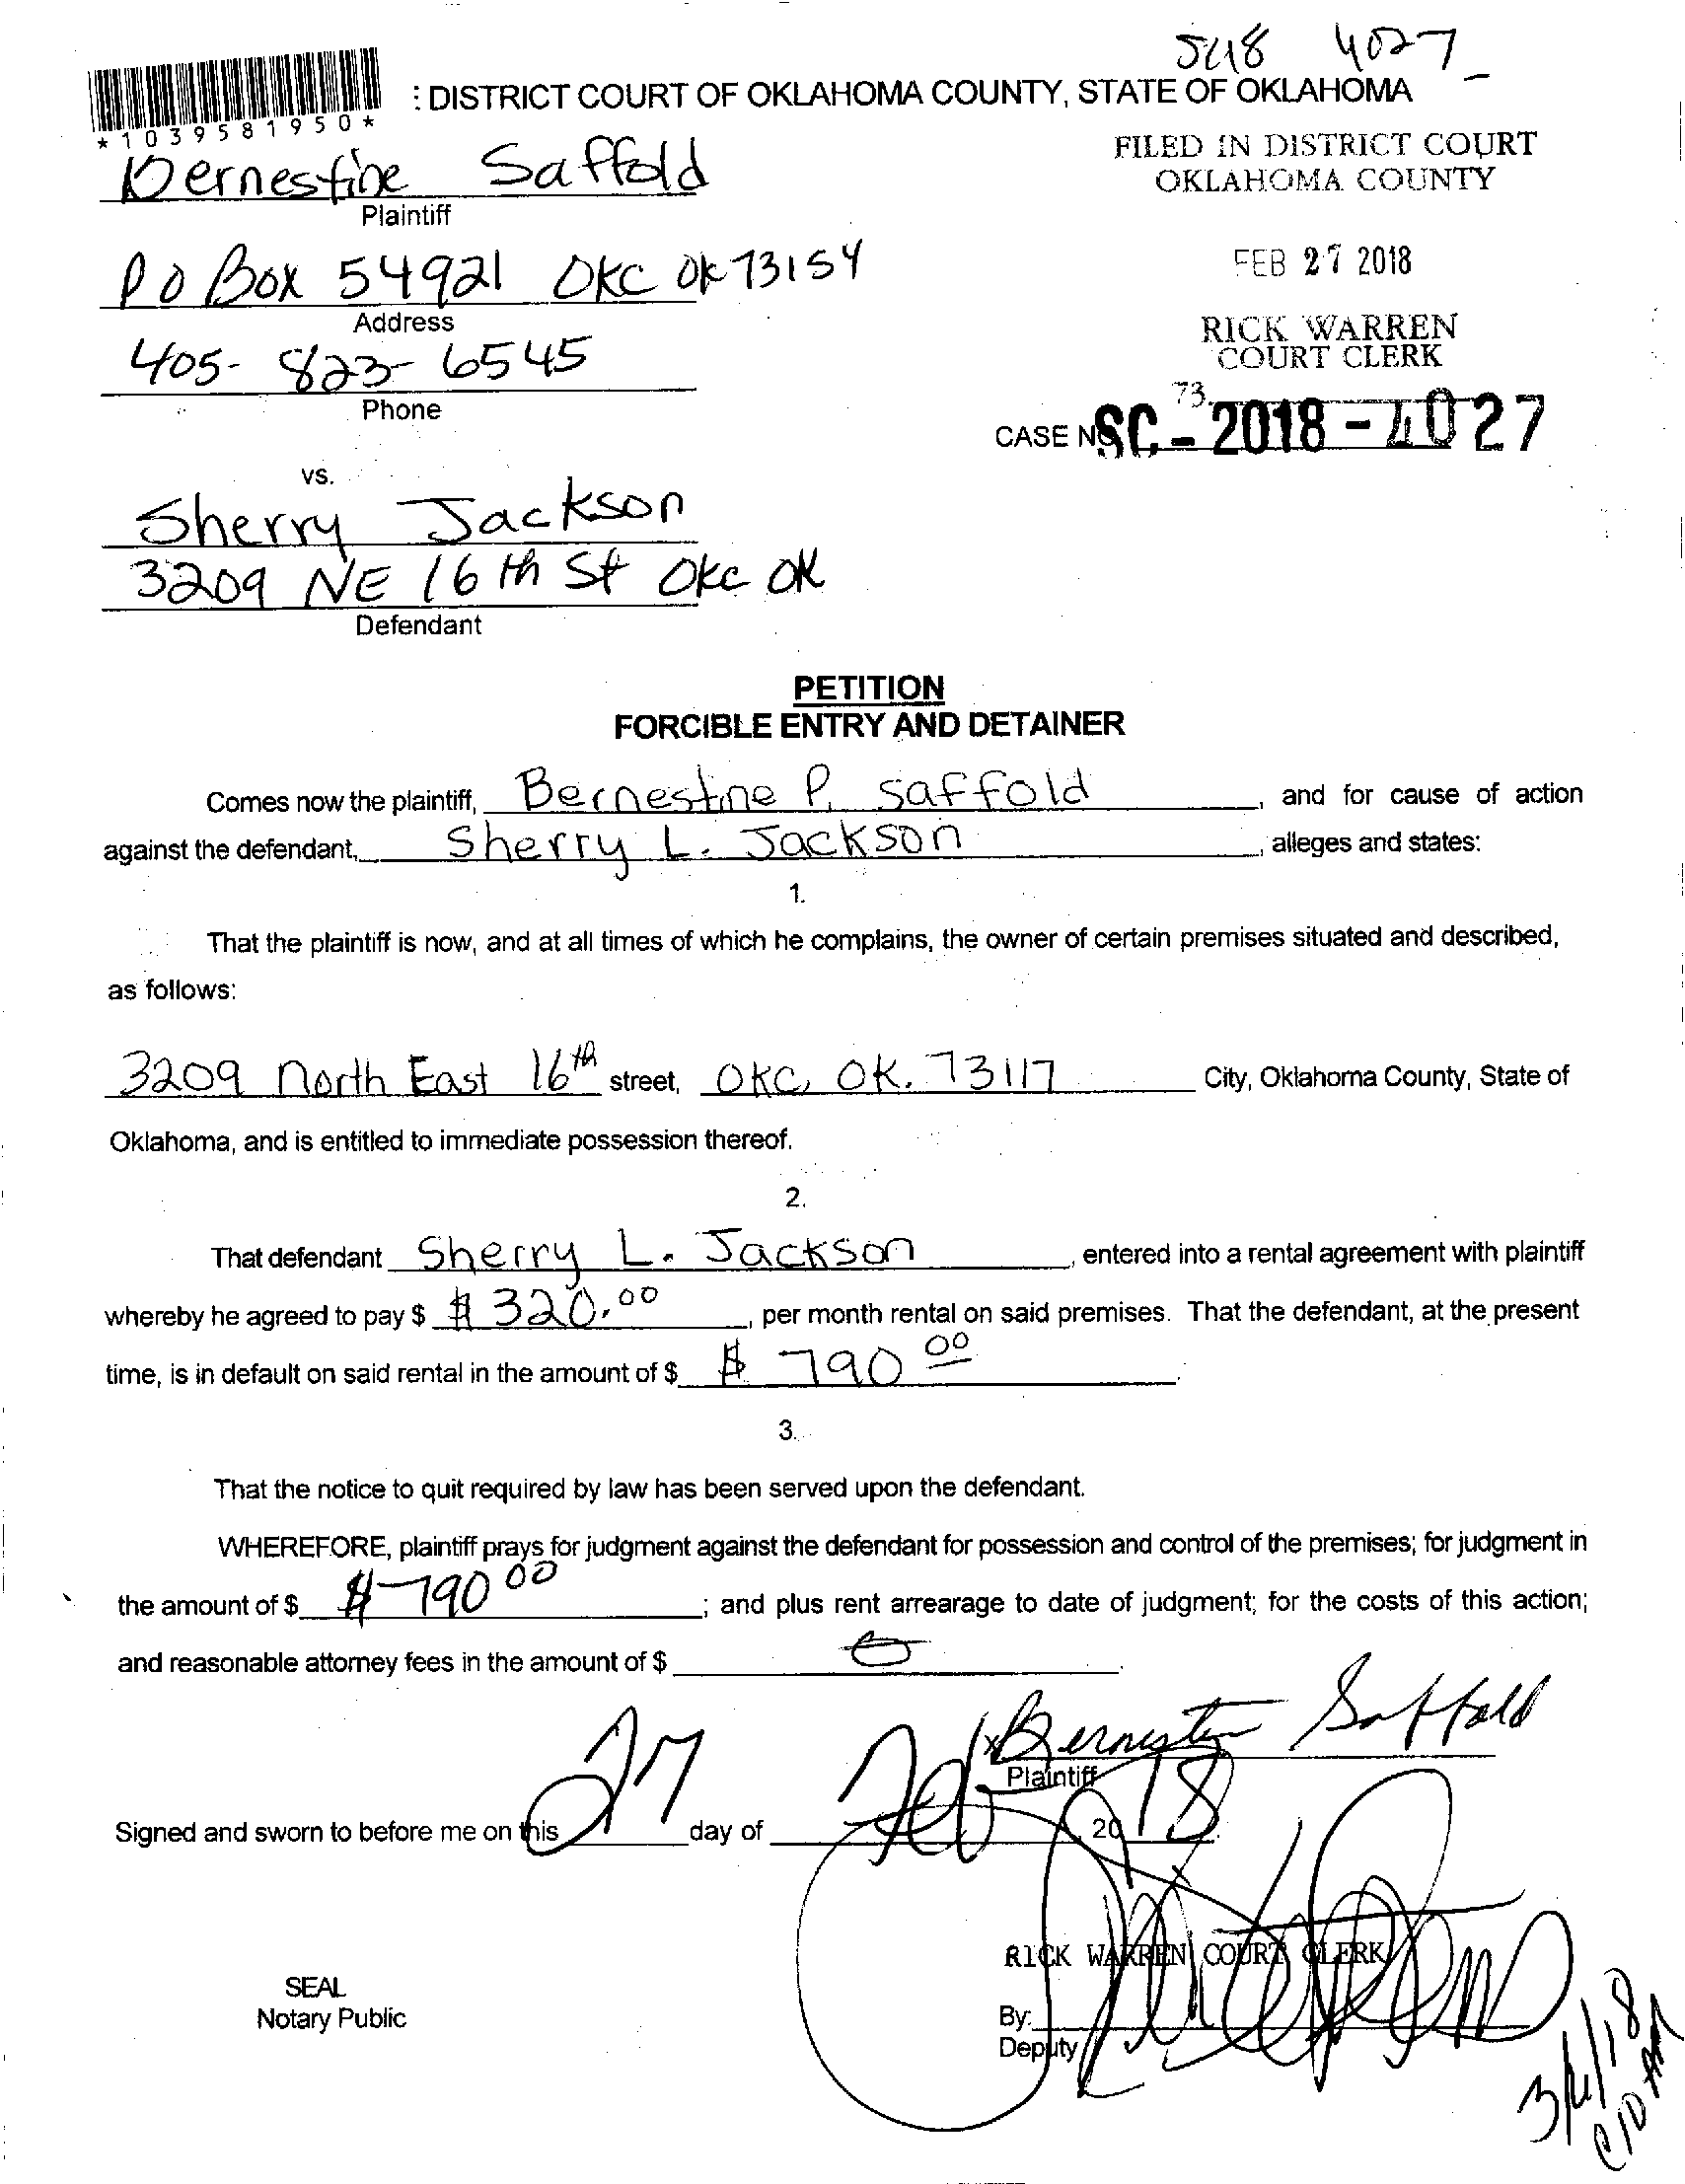 4027
*1039581950*
: DISTRICT COURT OF OKLAHOMA COUNTY, STATE OF OKLAHOMA
FILED IN DISTRICT COURT
OKLAHOMA COUNTY
Bernestine Saffold
Plaintiff
PO Box 54921 OKC OK 73154
Address
FEB 27 2018
405-823-6545
Phone
RICK WARREN
COURT CLERK
73
CASE NO SC-2018-4027
vs.
Sherry Jackson
3209 NE 16th St OKC OK
Defendant
PETITION
FORCIBLE ENTRY AND DETAINER
Comes now the plaintiff, Bernestine P. Saffold, and for cause of action
against the defendant, Sherry L. Jackson, alleges and states:
1.
That the plaintiff is now, and at all times of which he complains, the owner of certain premises situated and described,
as follows:
3209 North East 16th street, OKC, OK. 73117 City, Oklahoma County, State of
Oklahoma, and is entitled to immediate possession thereof.
2.
That defendant Sherry L. Jackson, entered into a rental agreement with plaintiff
whereby he agreed to pay $ $ 320.00, per month rental on said premises. That the defendant, at the present
time, is in default on said rental in the amount of $ $ 790 00.
3.
That the notice to quit required by law has been served upon the defendant.
WHEREFORE, plaintiff prays for judgment against the defendant for possession and control of the premises; for judgment in
the amount of $ $ 790 00; and plus rent arrearage to date of judgment; for the costs of this action;
and reasonable attorney fees in the amount of $ 0.
x Bernestine Saffold
Plaintiff
Signed and sworn to before me on this 27 day of Feb, 2018.
RICK WARREN COURT CLERK
SEAL
Notary Public
By:
Deputy
10 AM